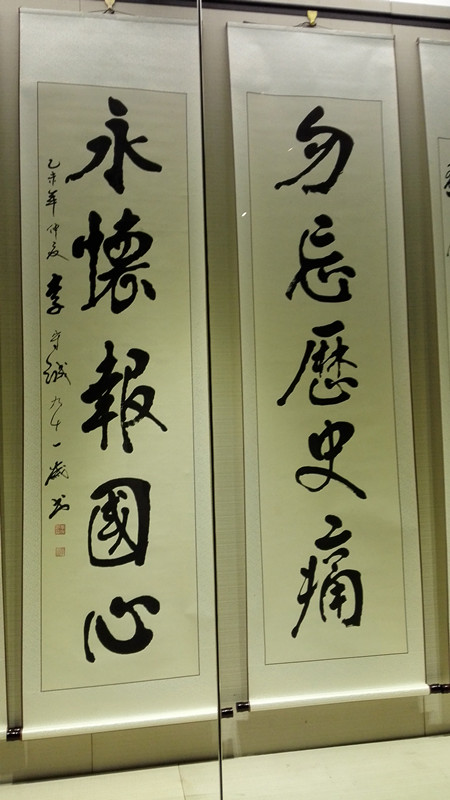 勿忘歷史痛
永懷報國心
乙未年仲夏 李守誠 九十一歲書